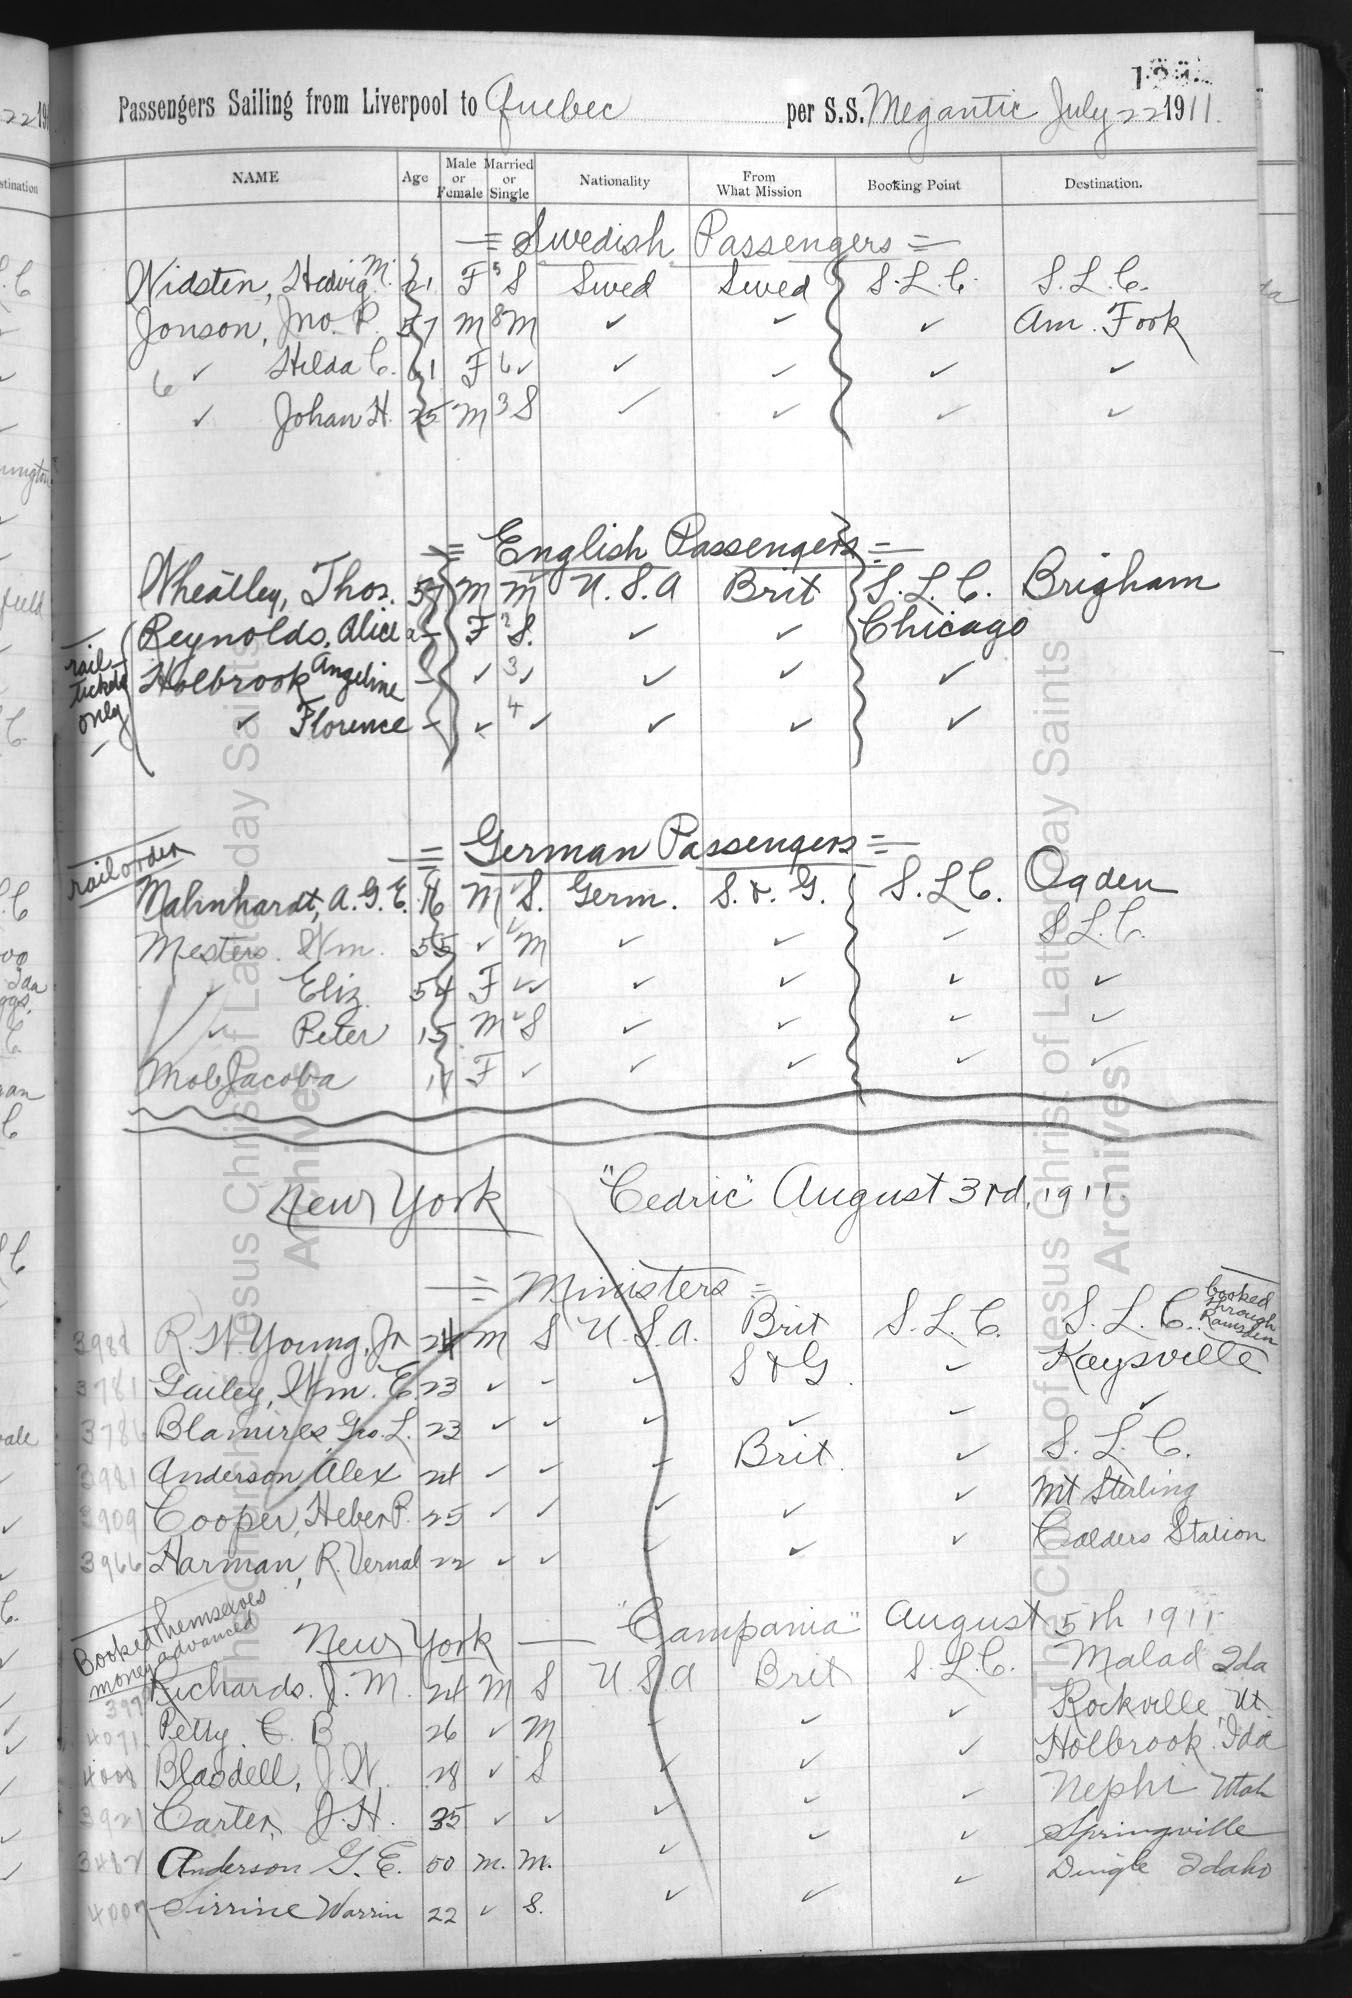 Passengers Sailing from Liverpool to Quebec per S.S. Megantic July 22 1911.
NAME Age Male or Female Married or Single Nationality From What Mission Booking Point Destination.
= Swedish Passengers =
Widsten, Hedvig M. 21 F 5 S Swed Swed S.L.C. S.L.C.
Jonson, Jno. P. 57 M 8 M ✓ ✓ ✓ Am. Fork
6 ✓ Hilda C. 61 F 6 ✓ ✓ ✓ ✓ ✓
✓ Johan H. 25 M 3 S ✓ ✓ ✓ ✓
= English Passengers =
Wheatley, Thos. 57 M M U.S.A Brit S.L.C. Brigham
rail tickets only ✓
Reynolds, Alice a - F 2 S. ✓ ✓ Chicago
Holbrook Angeline - ✓ 3 ✓ ✓ ✓ ✓
✓ Florence - ✓ 4 ✓ ✓ ✓ ✓
rail order
= German Passengers =
Mahnhardt, A.G.E. 16 M ✓ S. Germ. S. & G. S.L.C. Ogden
Mesters. Wm. 55 ✓ ✓ M ✓ ✓ ✓ S.L.C.
✓ Eliz. 54 F ✓ ✓ ✓ ✓ ✓ ✓
✓ Peter 15 M ✓ S ✓ ✓ ✓ ✓
Mol Jacoba 17 F ✓ ✓ ✓ ✓ ✓
New York "Cedric" August 3rd, 1911
= Ministers =
3988 R.W. Young, Jr 24 M S U.S.A. Brit S.L.C. S.L.C. booked through Ramsden
3781 Gailey, Wm. E 23 ✓ - ✓ S & G. ✓ Kaysville
3786 Blamires, Geo. L. 23 ✓ ✓ ✓ ✓ ✓ ✓
3981 Anderson, Alex 24 ✓ ✓ ✓ Brit. ✓ S.L.C.
3909 Cooper, Heber P. 25 ✓ ✓ ✓ ✓ ✓ Mt Sterling
3966 Harman, R. Vernal 22 ✓ ✓ ✓ ✓ ✓ Calders Station
Booked themselves
money advanced
New York — "Campania" August 5th 1911
Richards. J. M. 24 M S U.S.A Brit S.L.C. Malad Ida
4071 Petty. C. B. 26 ✓ M ✓ ✓ ✓ Rockville, Ut.
4008 Blasdell, J.W. 28 ✓ S ✓ ✓ ✓ Holbrook. Ida
3921 Carter, J.H. 35 ✓ ✓ ✓ ✓ ✓ Nephi Utah
Anderson G.E. 50 M. M. ✓ ✓ ✓ Springville
4007 Sirrine Warrin 22 ✓ S. ✓ ✓ ✓ Dingle Idaho
The Church of Jesus Christ of Latter-day Saints
Archives
The Church of Jesus Christ of Latter-day Saints
Archives